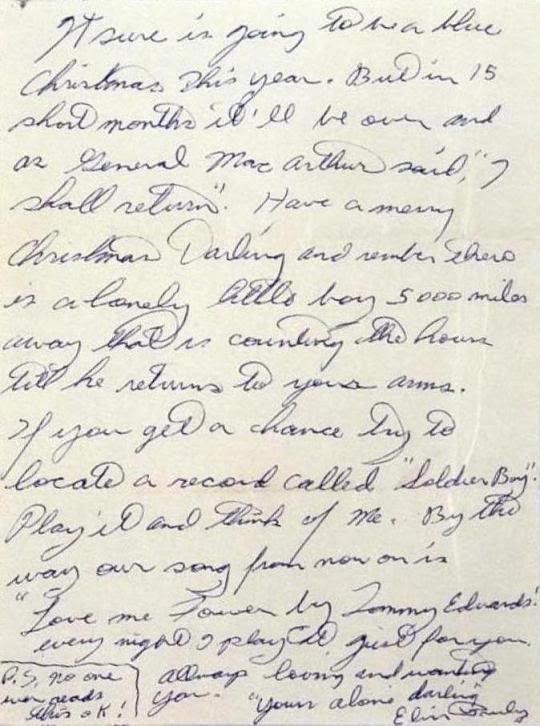 It sure is going to be a blue
Christmas this year. But in 15
short months it'll be over and
as General Mac arthur said, "I
shall return". Have a merry
Christmas Darling and rember there
is a lonely little boy 5000 miles
away that is counting the hours
till he returns to your arms.
If you get a chance try to
locate a record called "Soldier Boy".
Play it and think of Me. By the
way our song from now on is
"Love me by Tommy Edwards".
every night I play it just for you.
allways loving and wanting
you. "yours alone darling
Elvis Presley
P.S. no one
ever reads
this oK!